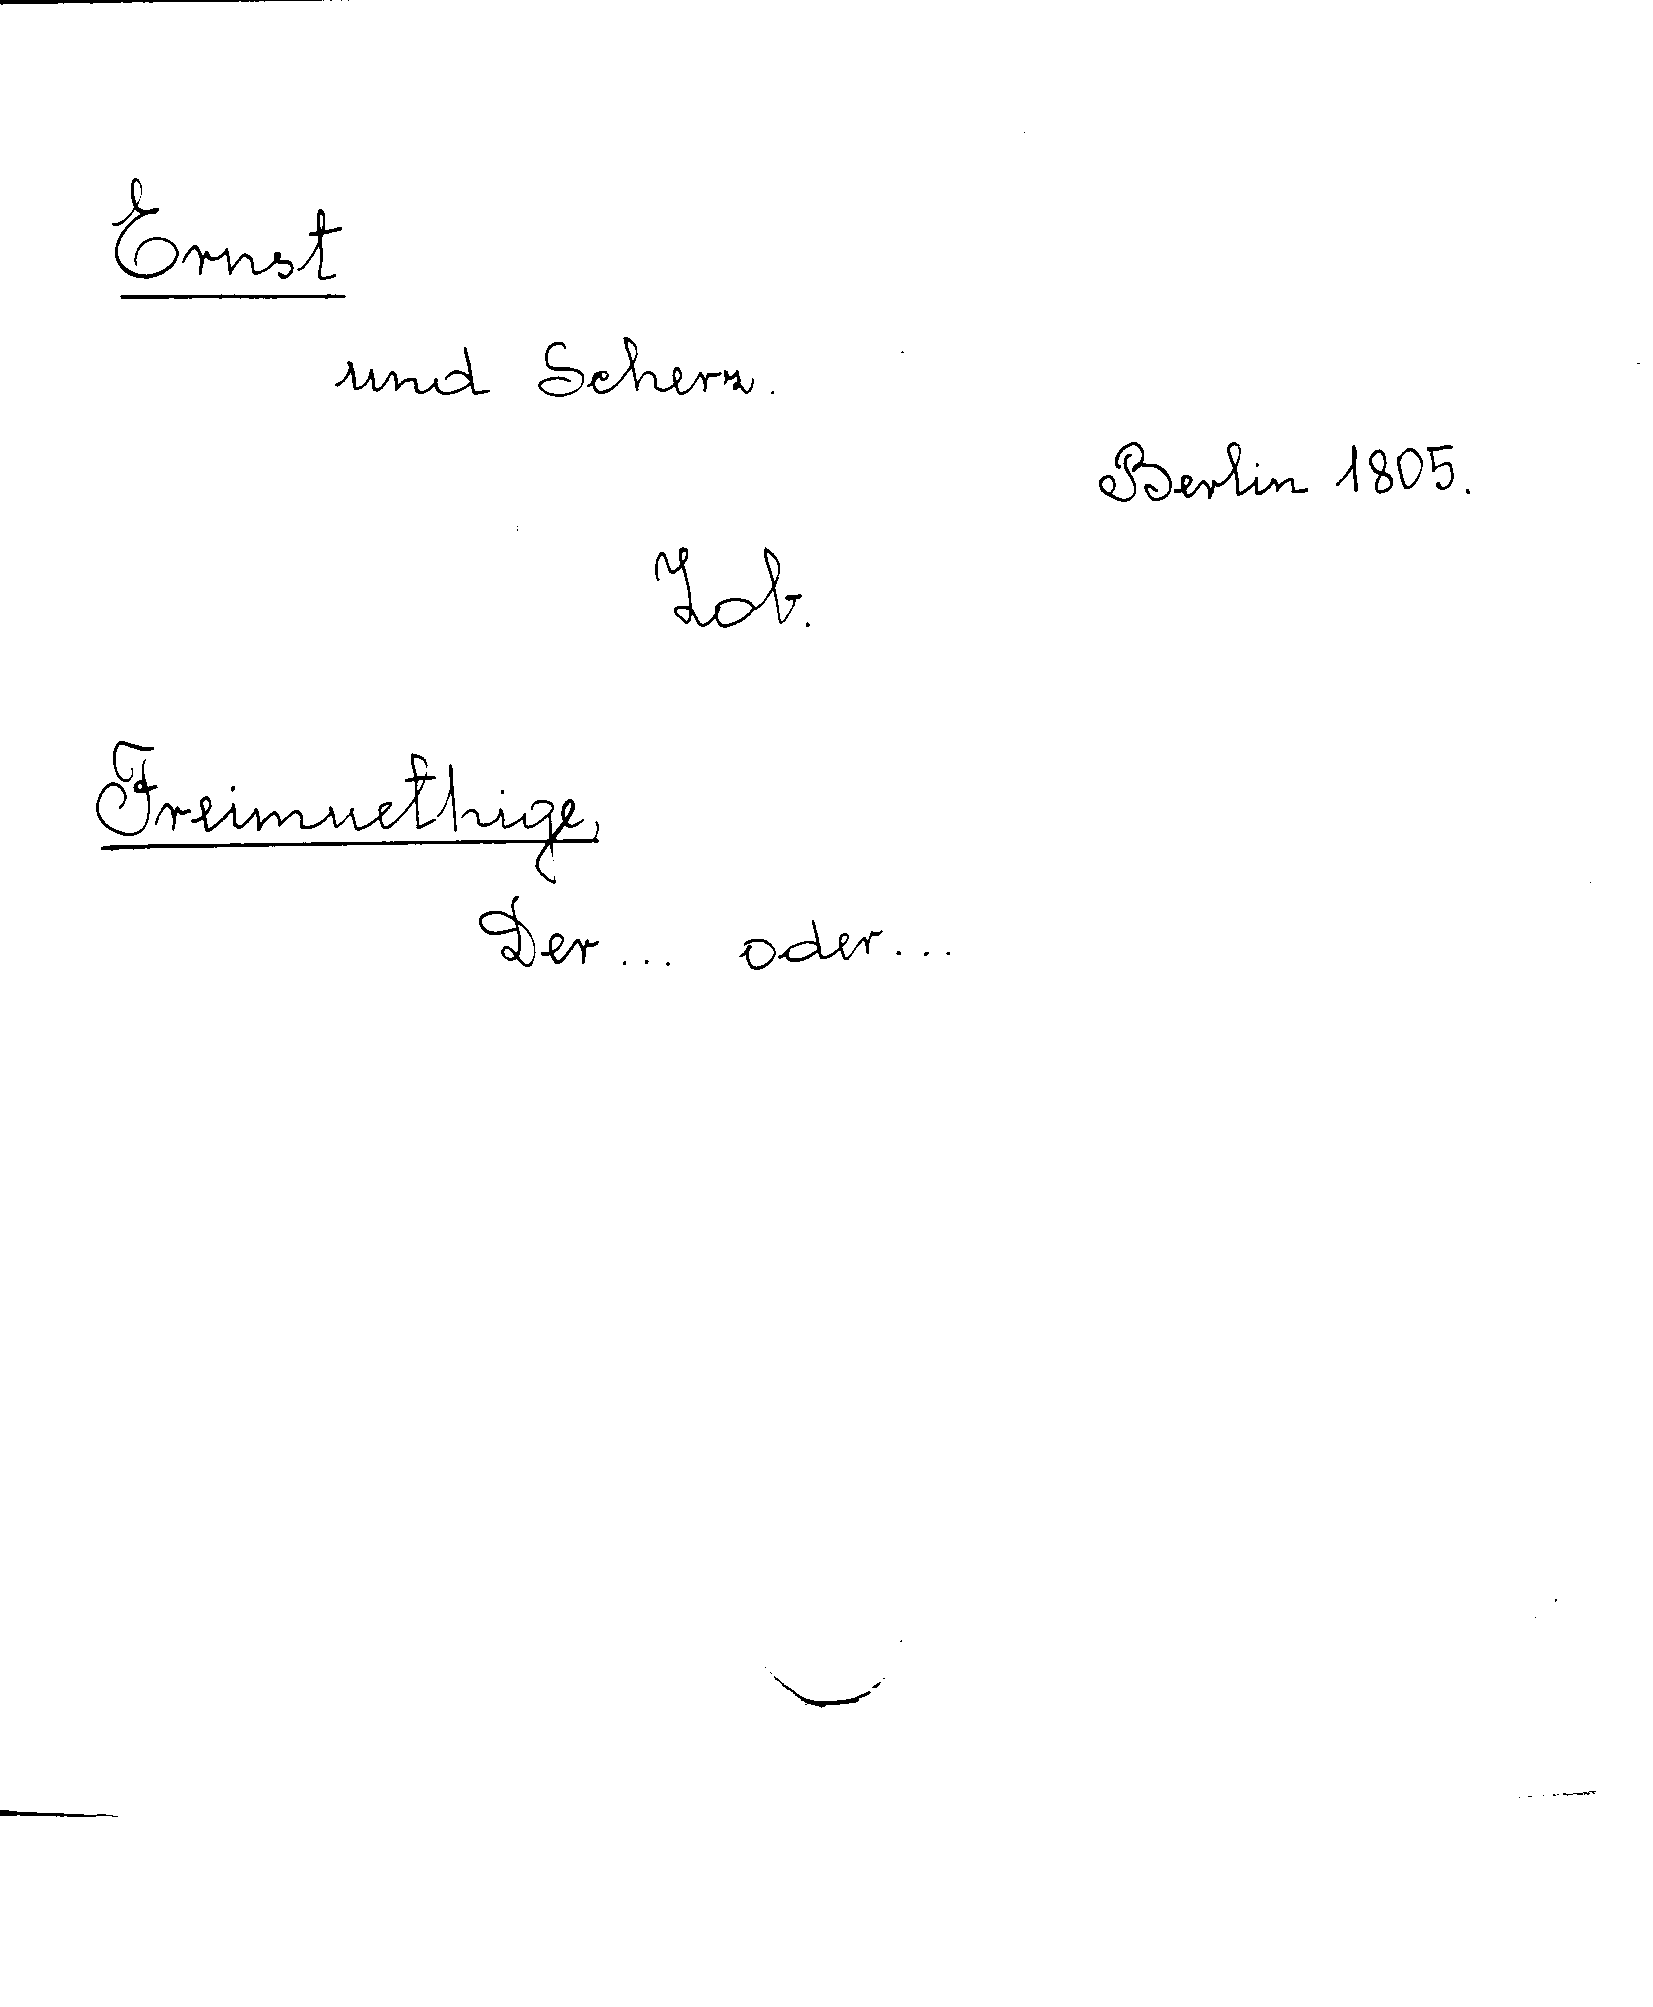 Ernst
und Scherz.
Berlin 1805.
Zob.
Freimuethige,
Der... oder...